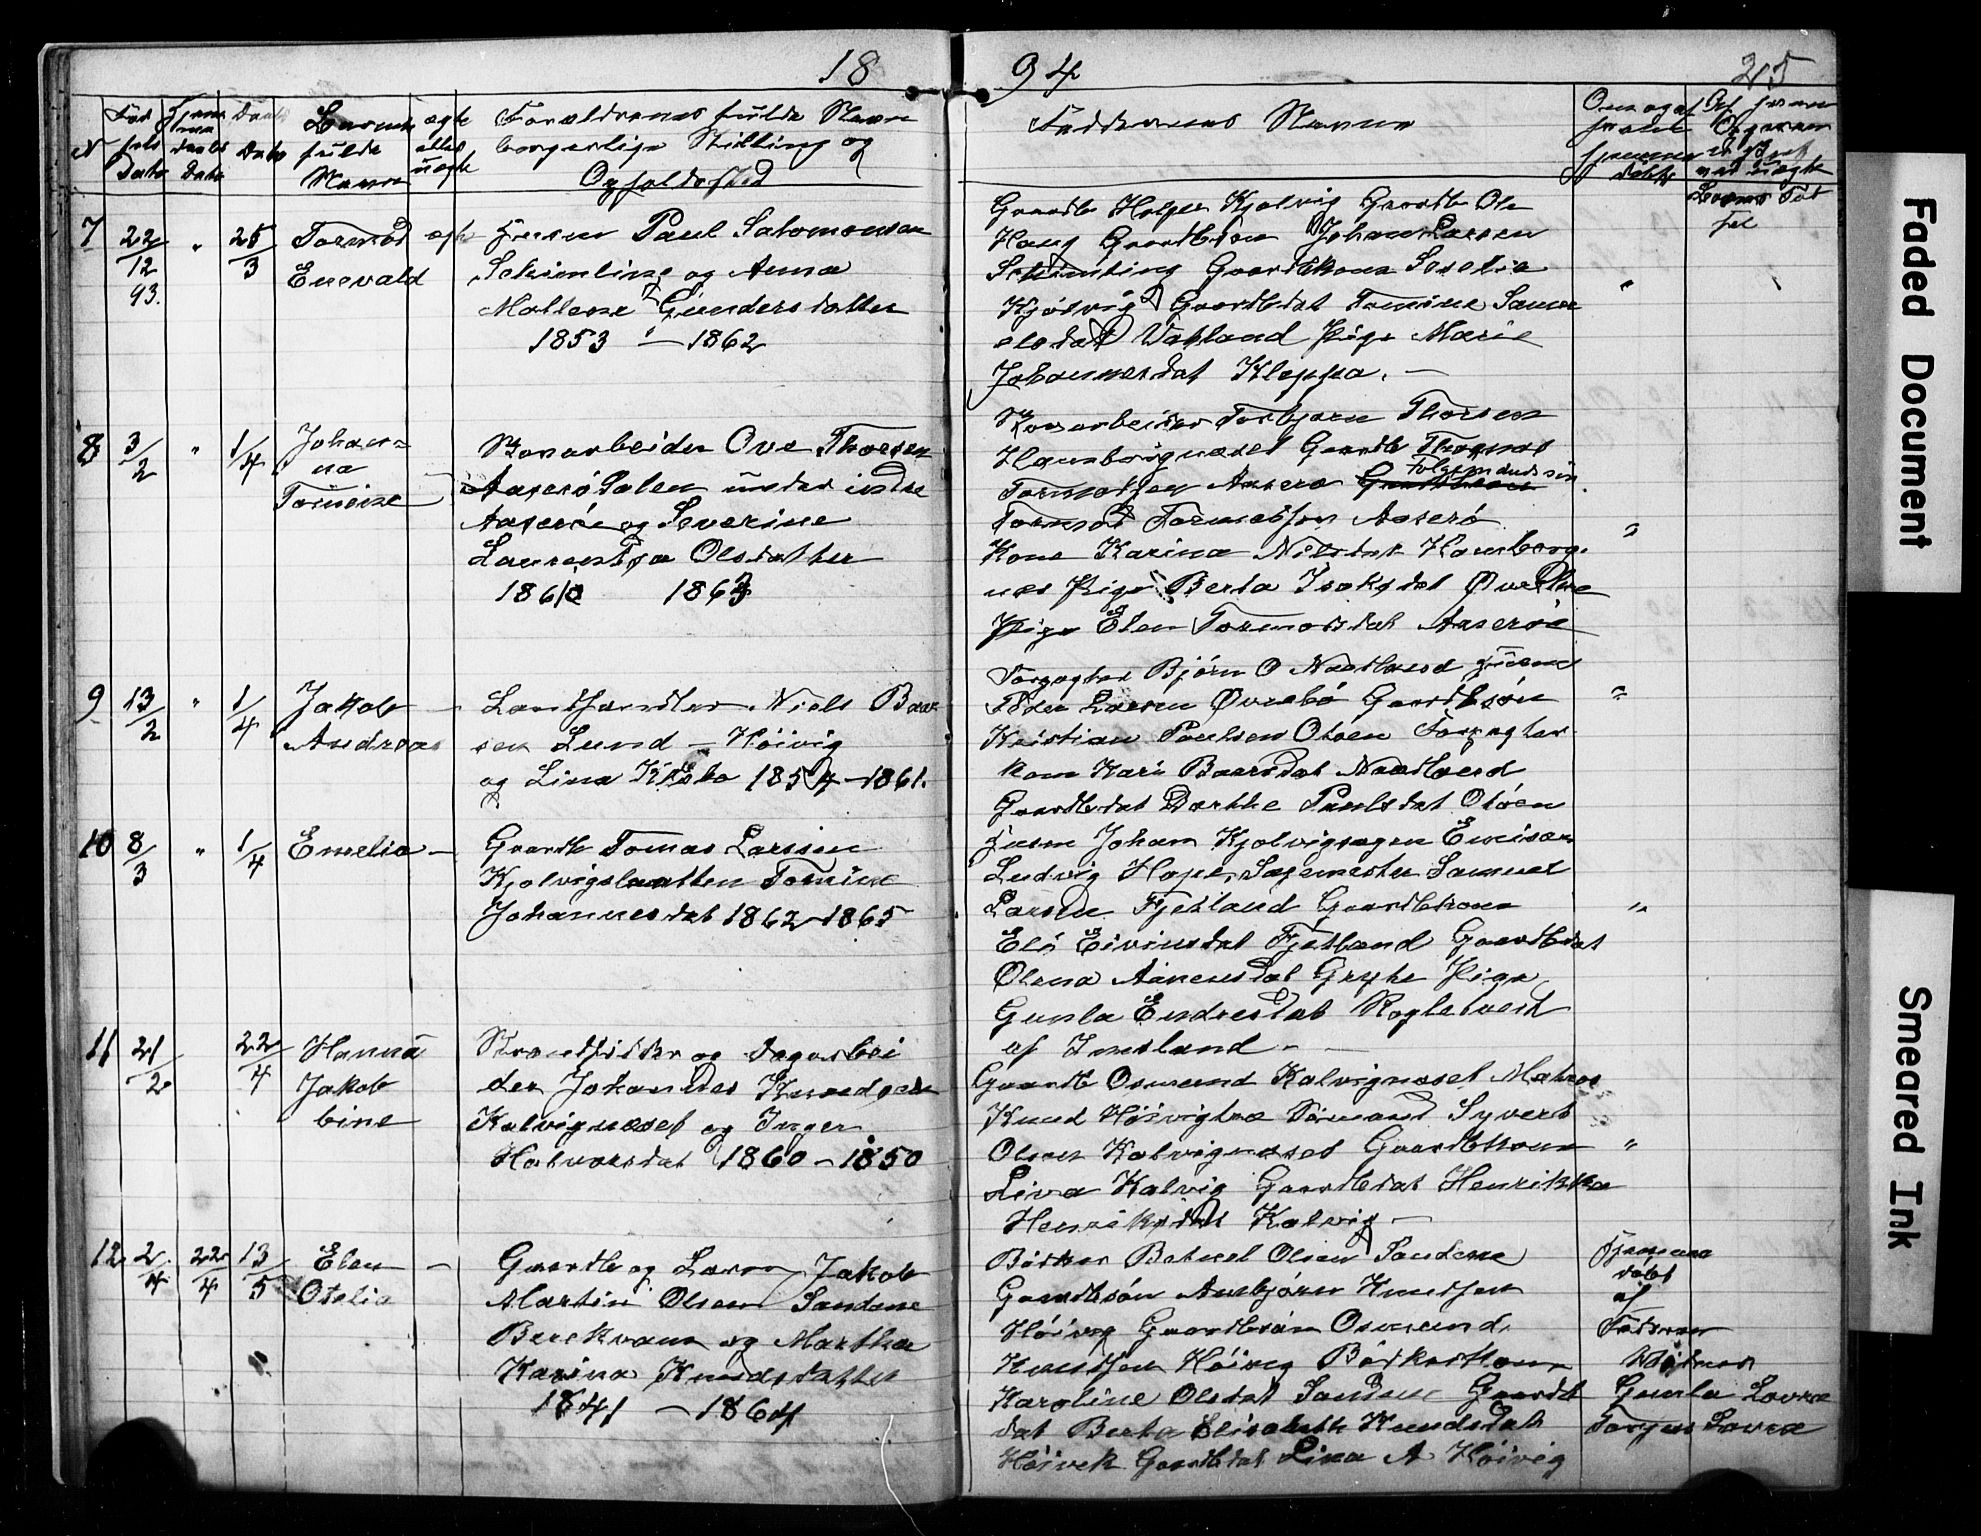 18 94 25
N
Fød
sels
Dato
Hjemme
daabs
Dato
Daabs
Dato
Barnets
fulde
Navn
ægte
eller
uægte
Forældrenes fulde Navn
borgerlige Stilling og
Opholdssted
Faddernes Navne
Om og af
hvem
hjemme
døbt
7
22/12
93.
"
25/3
Tormod
Enevald
ægte
Husm Paul Salomonsen
Skimling og Anna
Mallene Gundersdatter
1853 – 1862
Gaardbr Holger Kjølvig Gaardbr Ole
Haug Gaardbrsøn Johan Larsen
Skimling Gaardbkone Seselie
Kjølvig Gaardbdat Tomine Samu
elsdat Vatland Pige Marie
Johannesdat Kleppa. –
"
8
3/2
"
1/4
Johan=
na
Tomine
–
Banarbeider Ove Thorsen
Aaserö Salen under indre
Aaseröe og Severine
Laurentsa Olsdatter
1863
Banarbeider Torbjørn Thorsen
Hamborgnæset Gaardb Thormod
Tormodsen Aaserø
Tormod Tormodsen Aaserø
Kone Karina Nilsdat Hamborg
næs Pige Berta Isaksdat
Pige Elen Tormodsdat Aaserøe
"
9
13/2
"
1/4
Jakob
Andreas
–
Landhandler Niels Baar
sen Lund – Höivig
og Lina 1854 – 1861.
Forpagter Björn O Nordland Husmd
Peder Larsen Øvrebö Gaardbsön
Kristian Poulsen Otöen Forpagter
kone Kari Baarsdat
Gaardbdat Dorthe Paulsdat Otöen
"
10
8/3
"
1/4
Emelia –
Gaardb Tomas Larsen
Kjolvigslaatten Tomine
Johannesdat 1862 – 1865
Husm Johan Kjolvigsagen Emisær
Ludvig Hope, Sagemester Samuel
Larsen Fjetland Gaardbkone
Eli Eivinsdat Fjetland Gaardbdat
Olena Gryte Pige
Gunla Endresdat
af Imsland –
"
11
21/2
22/4
Hanna
Jakob
bine
Strandsidder og dagarbei
der Johannes Knudsen
Kalvignæset og Inger
Halvorsdat 1860 – 1850
Gaardb Osmund Kalvignæset Matros
Knud Höivigtræ Sömand Syvert
Olsen Kalvignæset Gaardbkone
Liva Kalvig Gaardbdat Henrikka
Henriksdat Kalvig –
"
12
2/4
22/4
13/5
Elen
Otelia
–
Gaardb og Jakob
Martin Olsen Sandene
Berekvam og Martha
Karina Knudsdatter
1841 – 1864
Bödker Betuel Olsen Sandene
Gaardbsön Asbjörn Knudsen
Höivig Gaardbsön Osmund
Knudsen Höivig Bödkerkone
Karoline Olsdat Sanden Gaardb
dat Berta Elisabeth Knudsdat
Höivek Gaardbdat Lina A Höivig
Hjemme
døbt
af
Faderen
Vidner
Gunla Lovra
Torger Lovra
Faded Document
Smeared Ink